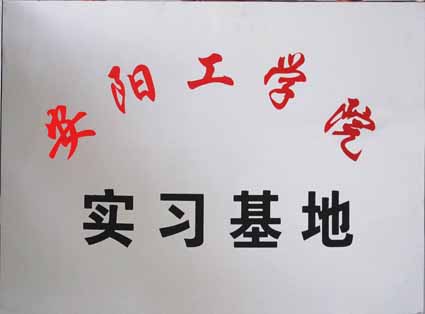 安阳工学院
实习基地